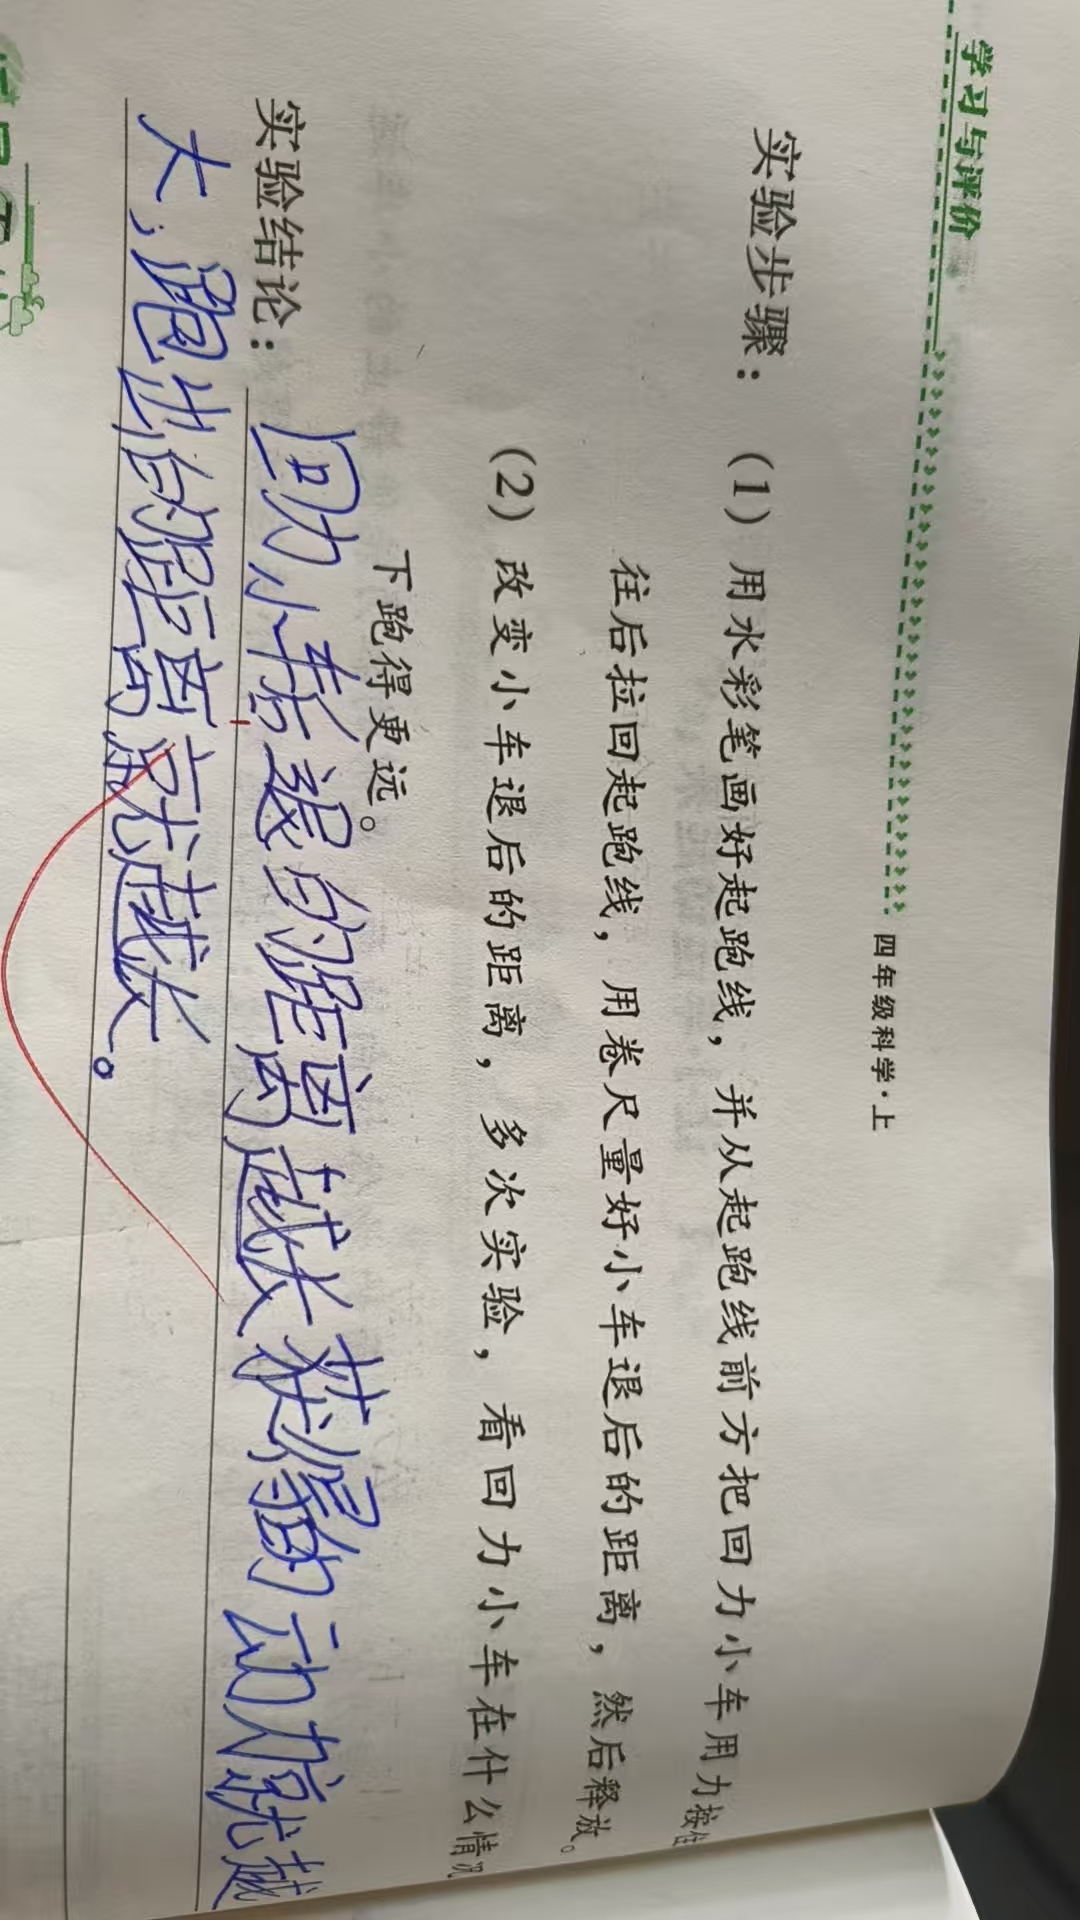 学习与评价
四年级科学·上
实验步骤：（1）用水彩笔画好起跑线，并从起跑线前方把回力小车用力按住
往后拉回起跑线，用卷尺量好小车退后的距离，然后释放。
（2）改变小车退后的距离，多次实验，看回力小车在什么情况
下跑得更远。
实验结论：回力小车后退的距离越长获得的动力就越
大，跑出的距离就越长。